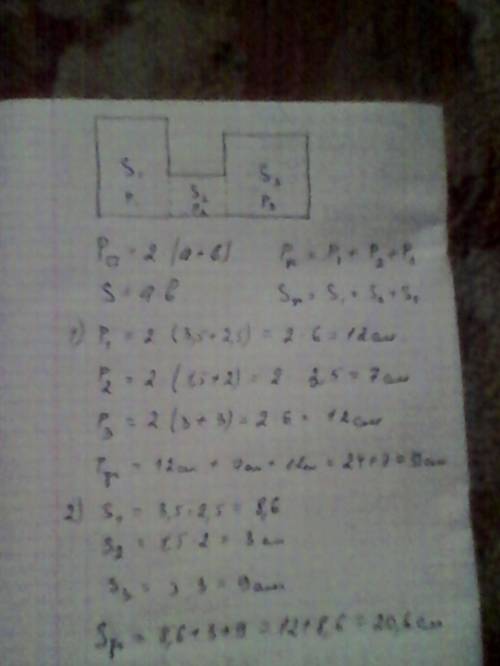 S₁
P₁
S₂
P₂
S₃
P₃
P▭ = 2 (a+b)
Pф = P₁ + P₂ + P₃
S = a b
Sф = S₁ + S₂ + S₃
1) P₁ = 2 (3,5+2,5) = 2 · 6 = 12 см
P₂ = 2 (1,5+2) = 2 3,5 = 7 см
P₃ = 2 (3+3) = 2 6 = 12 см
Pф = 12 см + 7 см + 12 см = 24+7 = 31 см
2) S₁ = 3,5·2,5 = 8,6
S₂ = 1,5·2 = 3 см
S₃ = 3 3 = 9 см
Sф = 8,6+3+9 = 12+8,6 = 20,6 см